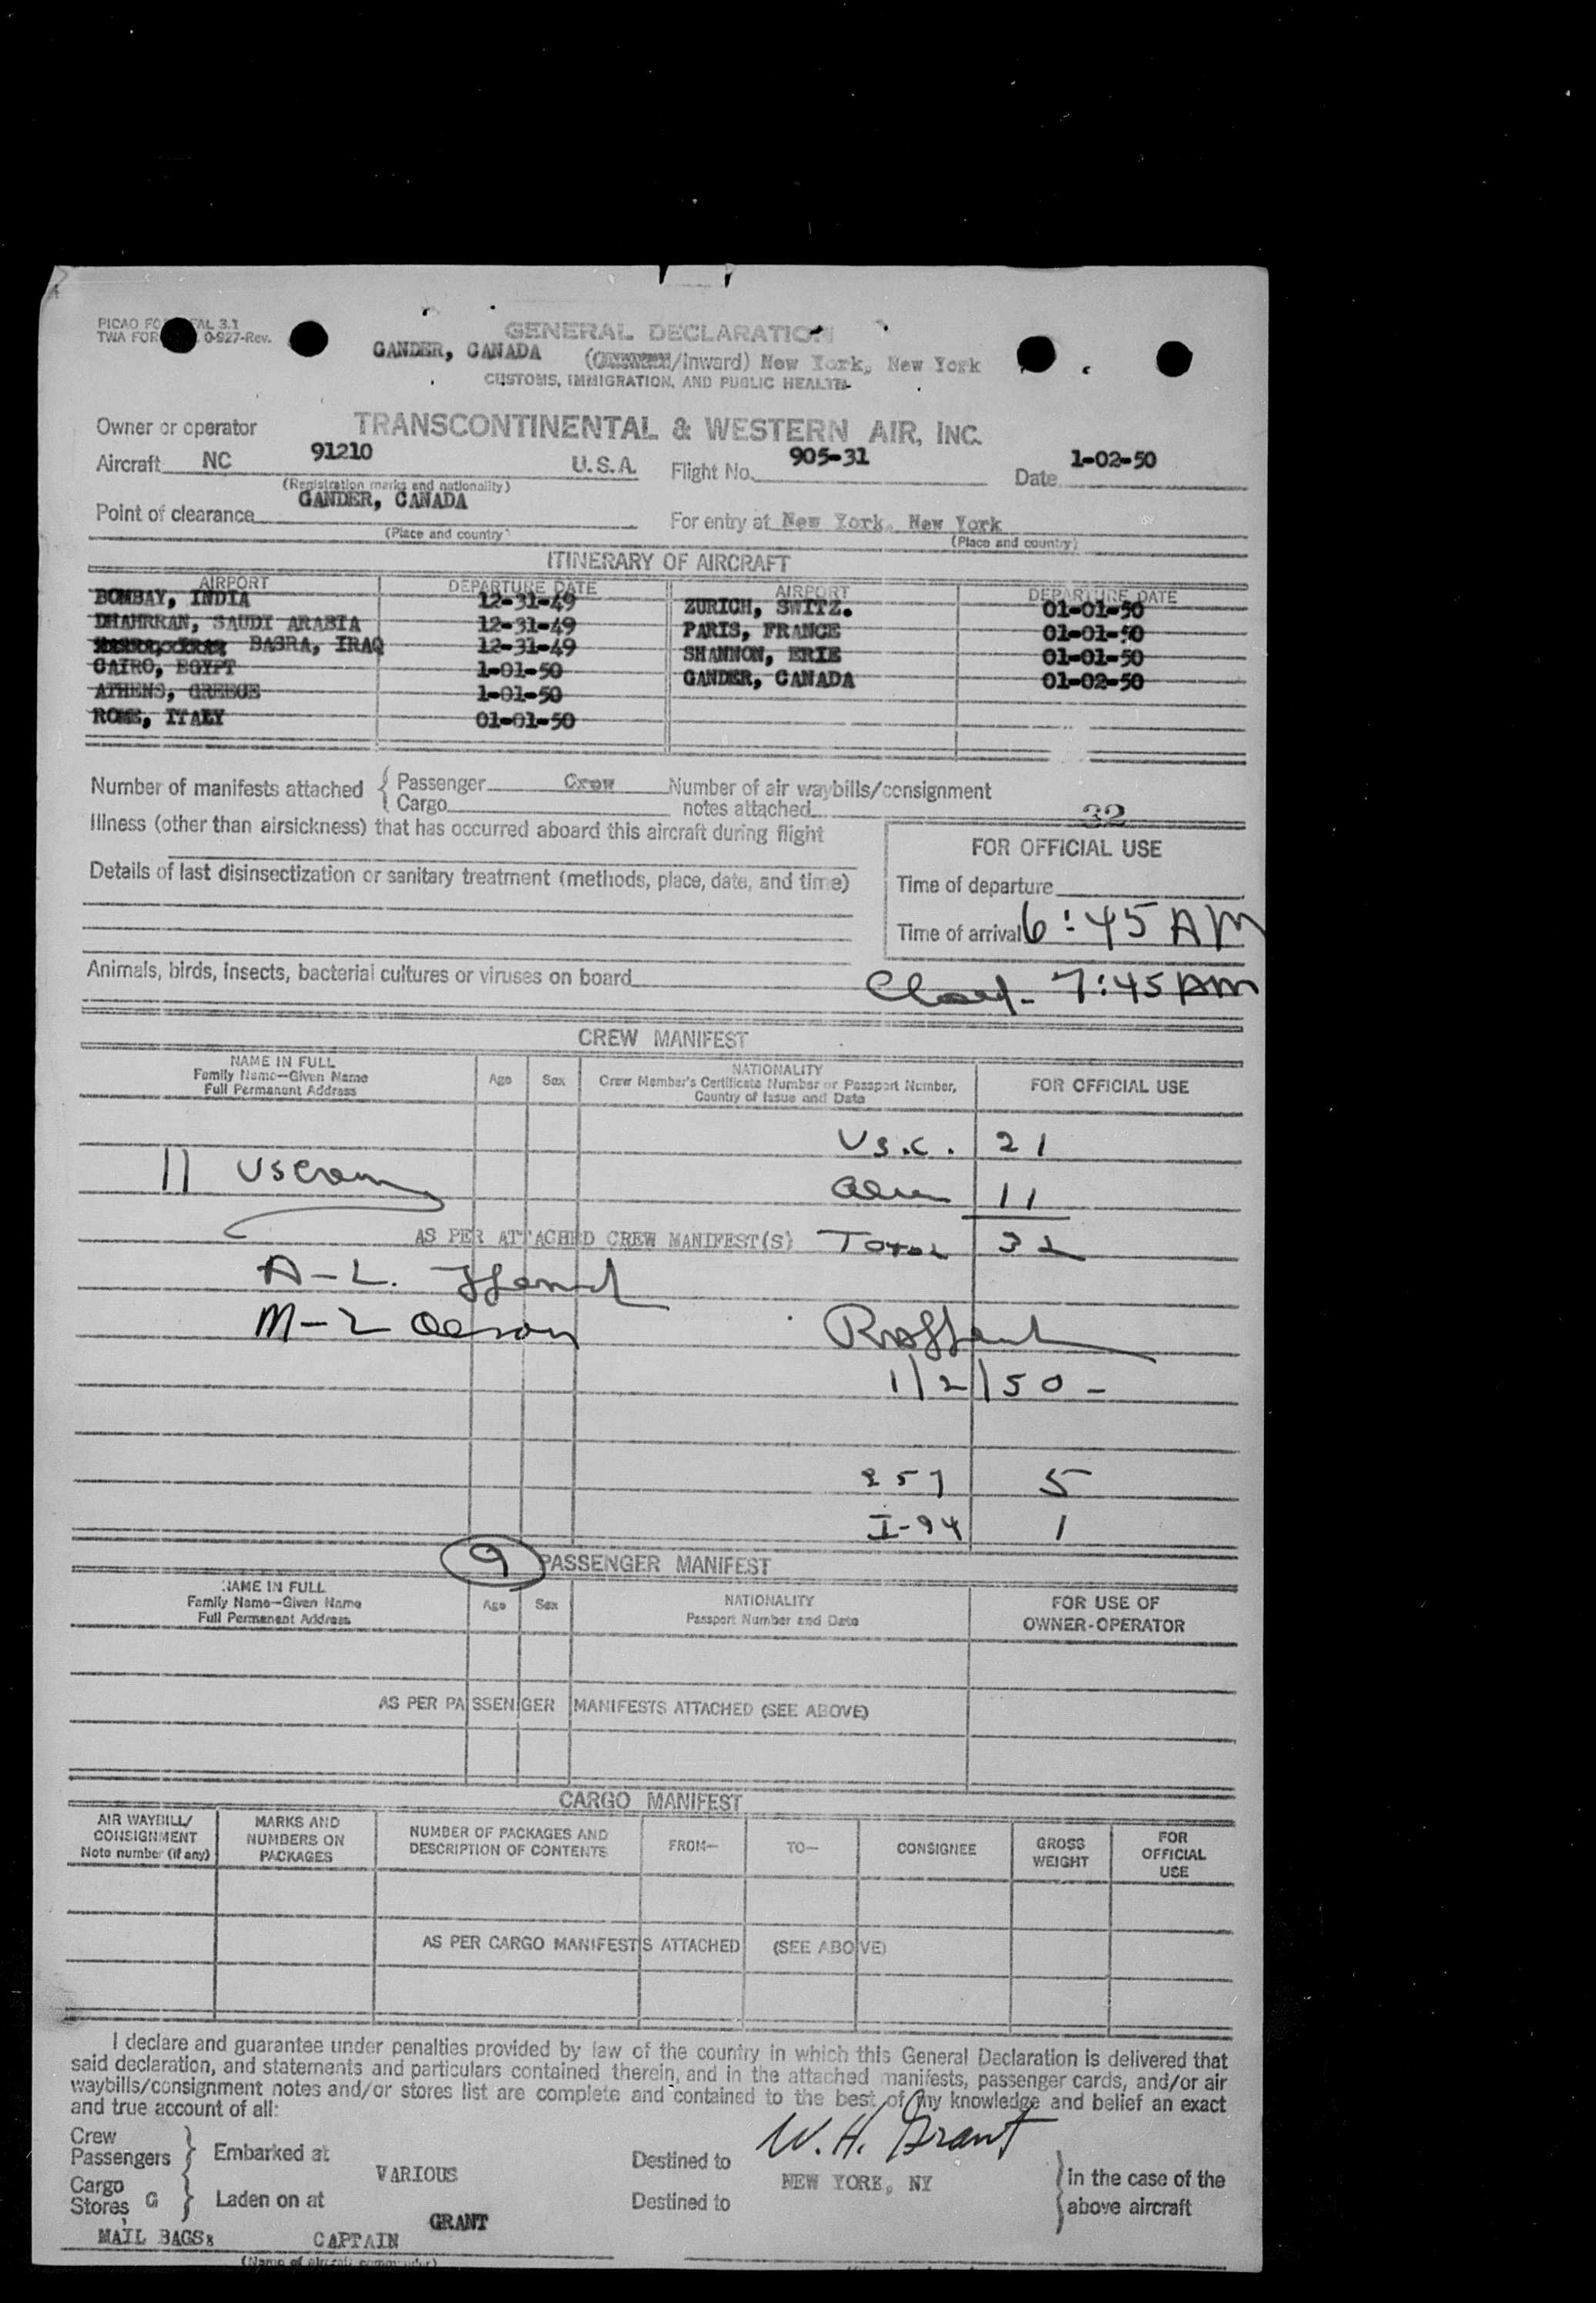 PICAO FO AL 3.1
TWA FOR 0-927-Rev.
GENERAL DECLARATION
GANDER, CANADA ( /Inward) New York, New York
CUSTOMS, IMMIGRATION, AND PUBLIC HEALTH
Owner or operator TRANSCONTINENTAL & WESTERN AIR, INC.
Aircraft NC 91210 U.S.A. Flight No. 905-31 Date 1-02-50
(Registration marks and nationality)
Point of clearance GANDER, CANADA For entry at New York, New York
(Place and country) (Place and country)
ITINERARY OF AIRCRAFT
AIRPORT DEPARTURE DATE AIRPORT DEPARTURE DATE
BOMBAY, INDIA 12-31-49 ZURICH, SWITZ. 01-01-50
DHAHRRAN, SAUDI ARABIA 12-31-49 PARIS, FRANCE 01-01-50
BASRA, IRAQ 12-31-49 SHANNON, ERIE 01-01-50
CAIRO, EGYPT 1-01-50 GANDER, CANADA 01-02-50
ATHENS, GREECE 1-01-50
ROME, ITALY 01-01-50
Number of manifests attached { Passenger Crew Number of air waybills/consignment
Cargo notes attached 32
Illness (other than airsickness) that has occurred aboard this aircraft during flight
FOR OFFICIAL USE
Details of last disinsectization or sanitary treatment (methods, place, date, and time)
Time of departure
Time of arrival 6:45 AM
Animals, birds, insects, bacterial cultures or viruses on board
7:45 AM
CREW MANIFEST
NAME IN FULL
Family Name—Given Name
Full Permanent Address
Age Sex
NATIONALITY
Crew Member's Certificate Number or Passport Number,
Country of Issue and Date
FOR OFFICIAL USE
U.S.C. 21
11
11
AS PER ATTACHED CREW MANIFEST(S) Total 32
A-L.
M-L
1/2/50-
257 5
I-94 1
9 PASSENGER MANIFEST
NAME IN FULL
Family Name—Given Name
Full Permanent Address
Age Sex
NATIONALITY
Passport Number and Date
FOR USE OF
OWNER-OPERATOR
AS PER PASSENGER MANIFESTS ATTACHED (SEE ABOVE)
CARGO MANIFEST
AIR WAYBILL/
CONSIGNMENT
Note number (if any)
MARKS AND
NUMBERS ON
PACKAGES
NUMBER OF PACKAGES AND
DESCRIPTION OF CONTENTS
FROM— TO— CONSIGNEE
GROSS
WEIGHT
FOR
OFFICIAL
USE
AS PER CARGO MANIFESTS ATTACHED (SEE ABOVE)
I declare and guarantee under penalties provided by law of the country in which this General Declaration is delivered that
said declaration, and statements and particulars contained therein, and in the attached manifests, passenger cards, and/or air
waybills/consignment notes and/or stores list are complete and contained to the best of my knowledge and belief an exact
and true account of all:
W. H. Grant
Crew
Passengers } Embarked at VARIOUS Destined to NEW YORK, NY } in the case of the
Cargo
Stores G } Laden on at Destined to above aircraft
GRANT
MAIL BAGS: CAPTAIN
(Name of aircraft commander)